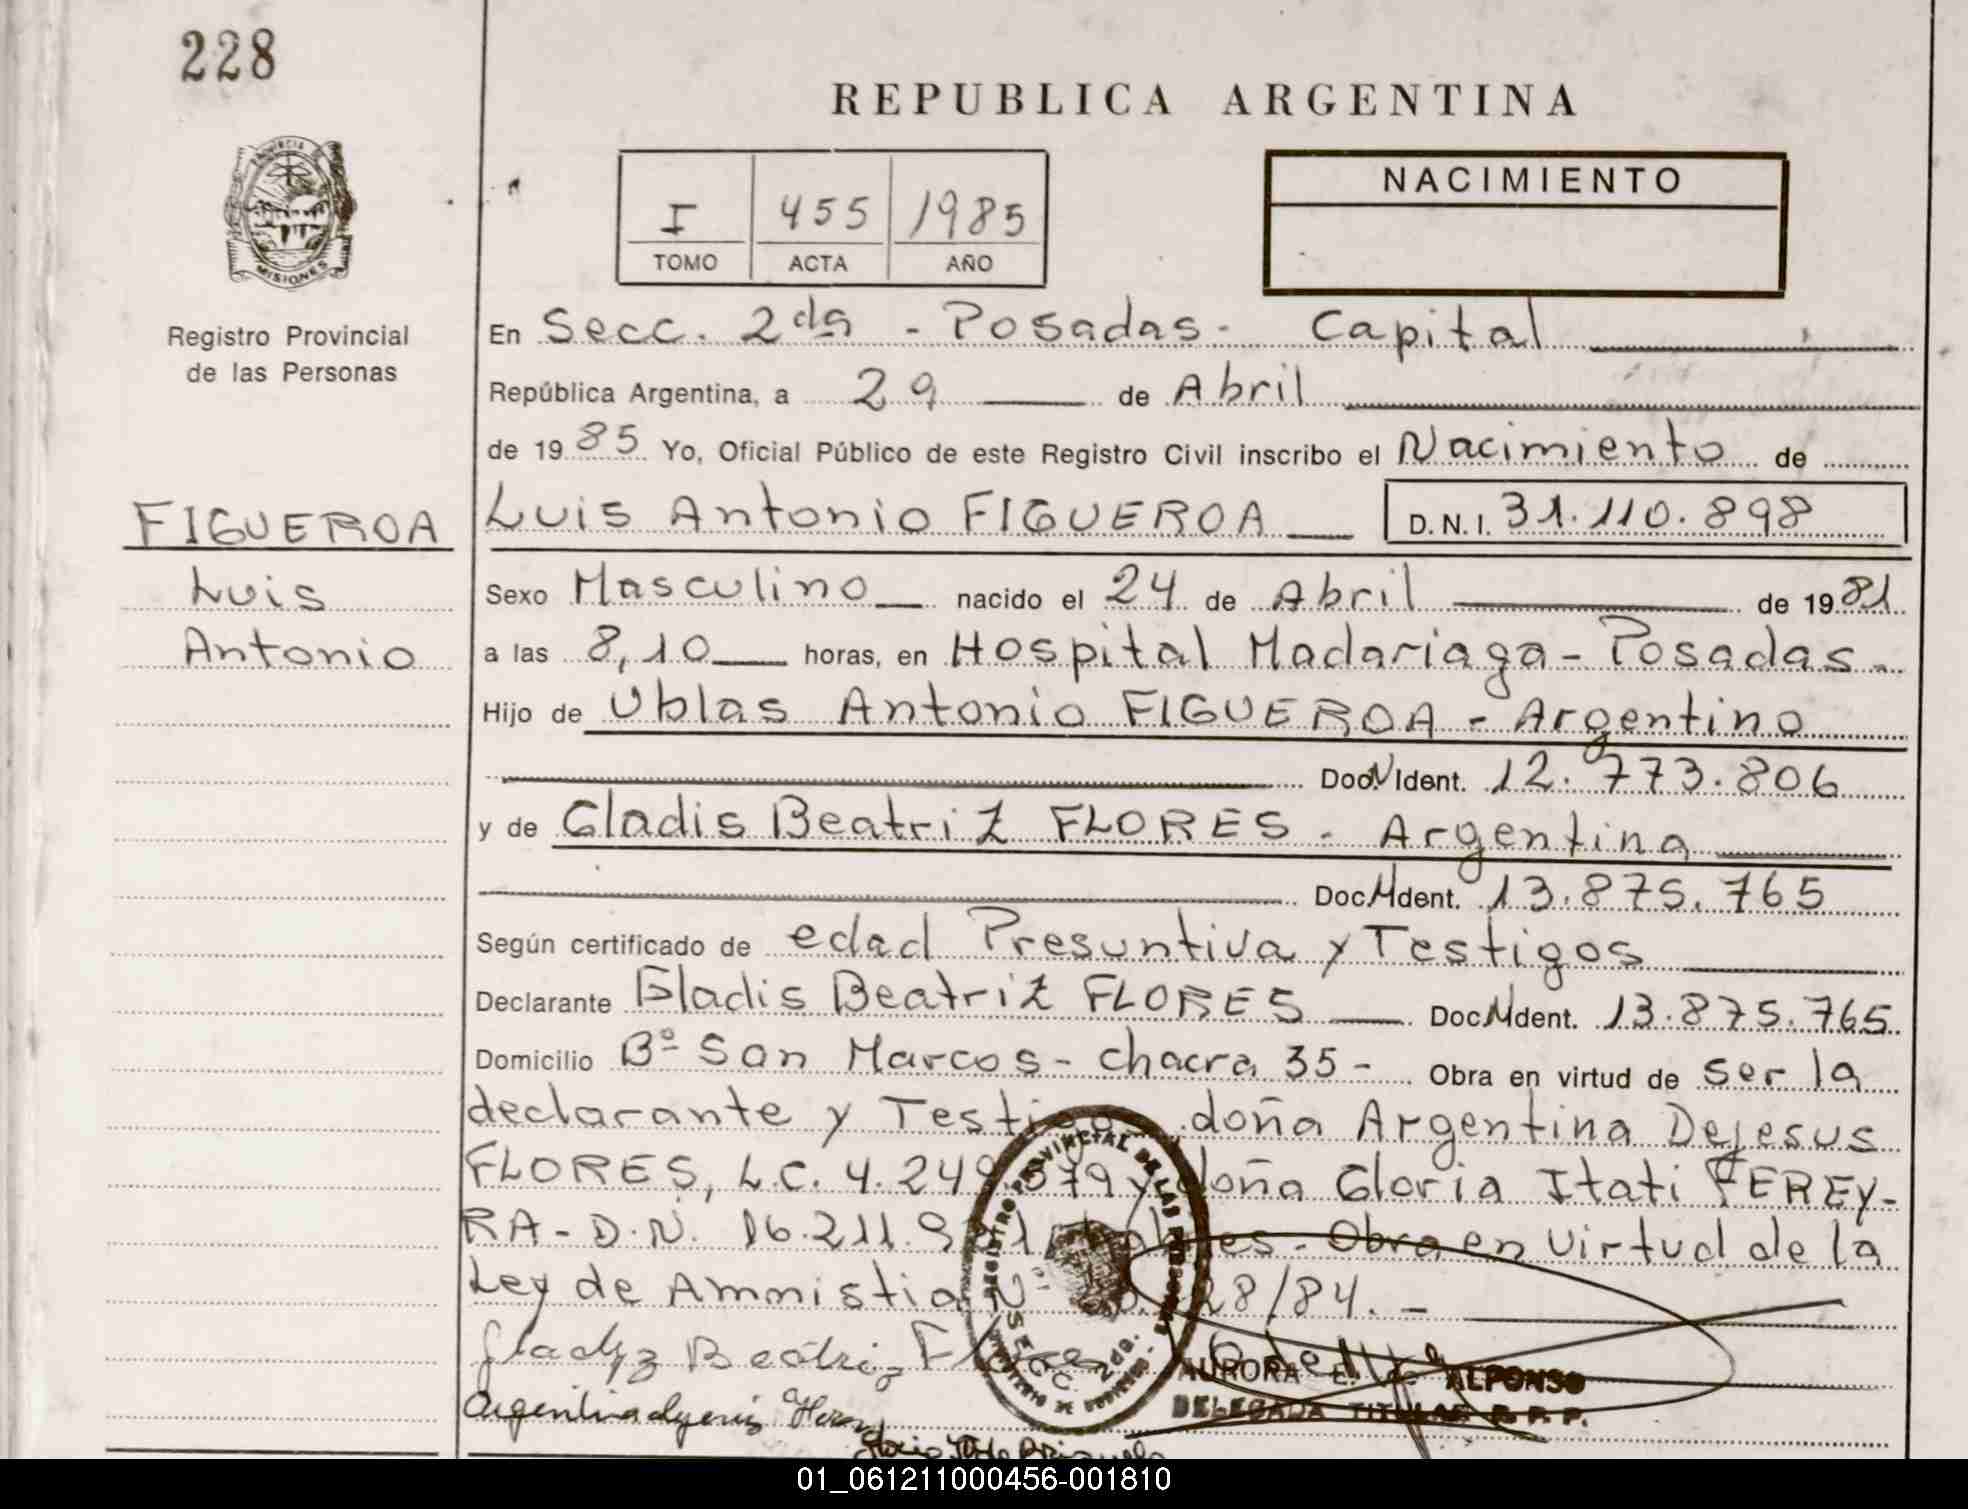 228
REPUBLICA ARGENTINA
PROVINCIA DE
MISIONES
I 455 1985
TOMO ACTA AÑO
NACIMIENTO
Registro Provincial
de las Personas
En Secc. 2da - Posadas - Capital
República Argentina, a 29 de Abril
de 1985 Yo, Oficial Público de este Registro Civil inscribo el Nacimiento de
FIGUEROA
Luis
Antonio
Luis Antonio FIGUEROA D.N.I. 31.110.898
Sexo Masculino nacido el 24 de Abril de 1981
a las 8,10 horas, en Hospital Madariaga - Posadas -
Hijo de Ublas Antonio FIGUEROA - Argentino
Doc N Ident. 12.773.806
y de Gladis Beatriz FLORES - Argentina
Doc N Ident. 13.875.765
Según certificado de edad Presuntiva y Testigos
Declarante Gladis Beatriz FLORES Doc N Ident. 13.875.765
Domicilio Bº San Marcos - Chacra 35 - Obra en virtud de ser la
declarante y doña Argentina Dejesus
FLORES, L.C. 4.249.079 y doña Gloria Itati FEREY-
RA - D.N. 16.211. - Obra en virtud de la
Ley de Amnistia Nº 28/84. -
REGISTRO PROVINCIAL DE LAS PERSONAS
SECC. 2da.
MINISTERIO DE GOBIERNO
Gladyz Beatriz Flores
AURORA E. de ALFONSO
DELEGADA TITULAR R. P. P.
Argentina
01_061211000456-001810